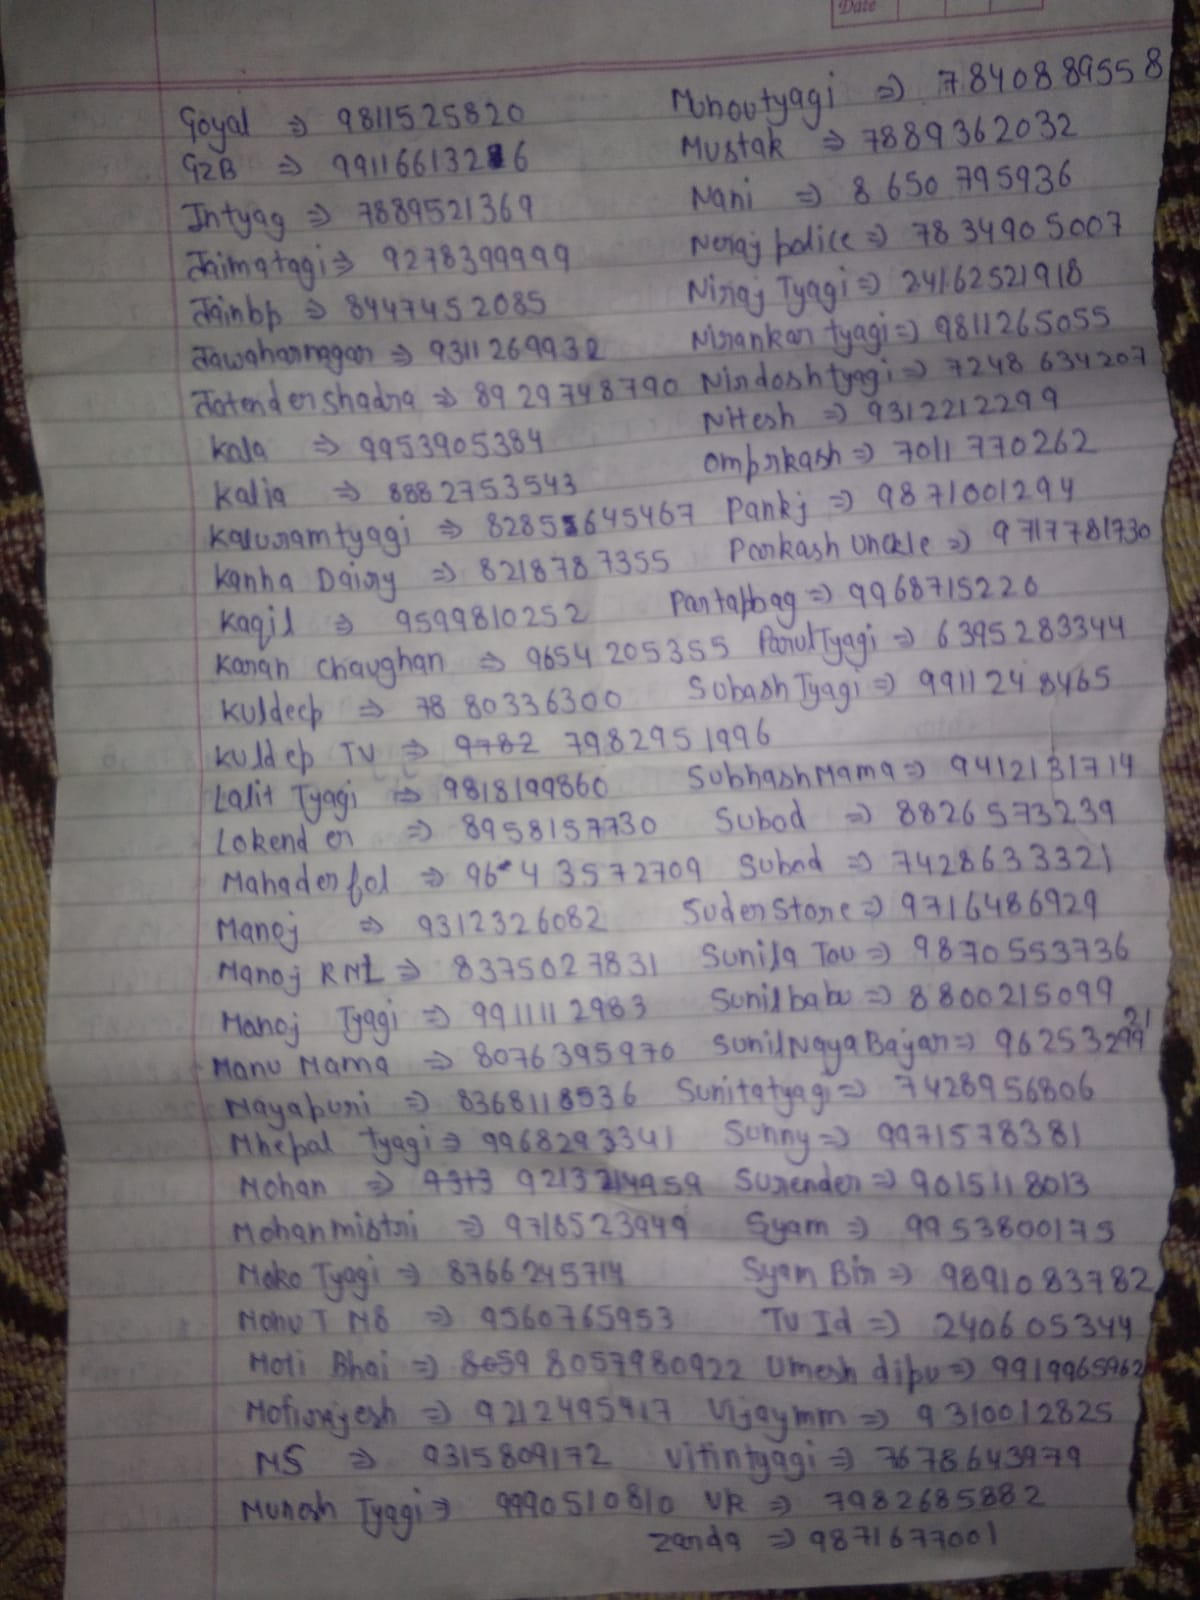 Date
Goyal ⇒ 9811525820
GZB ⇒ 9911661326
Intyag ⇒ 7889521369
Jaimatagi ⇒ 9278399999
Jainbp ⇒ 8447452085
Jawaharnagar ⇒ 9311269932
Jatendershadra ⇒ 8929748790
Kala ⇒ 9953905384
Kalia ⇒ 8882753543
Kaluramtyagi ⇒ 82855645467
Kanha Dairy ⇒ 8218787355
Kaqil ⇒ 9599810252
Karan Chaughan ⇒ 9654205355
Kuldeep ⇒ 7880336300
Kuldep TV ⇒ 9782 7982951996
Lalit Tyagi ⇒ 9818199860
Lokender ⇒ 8958157730
Mahaderfol ⇒ 9643572709
Manoj ⇒ 9312326082
Manoj RML ⇒ 8375027831
Manoj Tyagi ⇒ 9911112983
Manu Mama ⇒ 8076395970
Mayapuri ⇒ 8368118536
Mhepal Tyagi ⇒ 9968293341
Mohan ⇒ 9313 9213214959
Mohanmistri ⇒ 9718523949
Moko Tyagi ⇒ 8766245714
Mohu T M8 ⇒ 9560765953
Moti Bhai ⇒ 8059 8057980922
⇒ 9212495917
MS ⇒ 9315809172
Munesh Tyagi ⇒ 9990510810
⇒ 7840889558
Mustak ⇒ 7889362032
Nani ⇒ 8650795936
Neraj police ⇒ 7834905007
Niraj Tyagi ⇒ 24162521918
Nirankar tyagi ⇒ 9811265055
Nirdoshtyagi ⇒ 7248634207
Nitesh ⇒ 9312212299
Omprkash ⇒ 7011770262
Pankj ⇒ 9871001294
Parkash Uncle ⇒ 9717781730
Partapbag ⇒ 9968715220
ParulTyagi ⇒ 6395283344
SubashTyagi ⇒ 9911248465
SubhashMama ⇒ 9412131714
Subod ⇒ 8826573239
Subod ⇒ 7428633321
SuderStore ⇒ 9716486929
Sunila Tau ⇒ 9870553736
Sunilbabu ⇒ 8800215099
SunilNayaBajar ⇒ 96253299 21
Sunitatyagi ⇒ 7428956806
Sunny ⇒ 9971578381
Surender ⇒ 9015118013
Syam ⇒ 9953800175
Syam Bir ⇒ 9891083782
TV Id ⇒ 240605344
Umesh dipu ⇒ 9919965962
Vijaymm ⇒ 9310012825
Vitintyagi ⇒ 7678643979
VR ⇒ 7982685882
Zarda ⇒ 9871677001